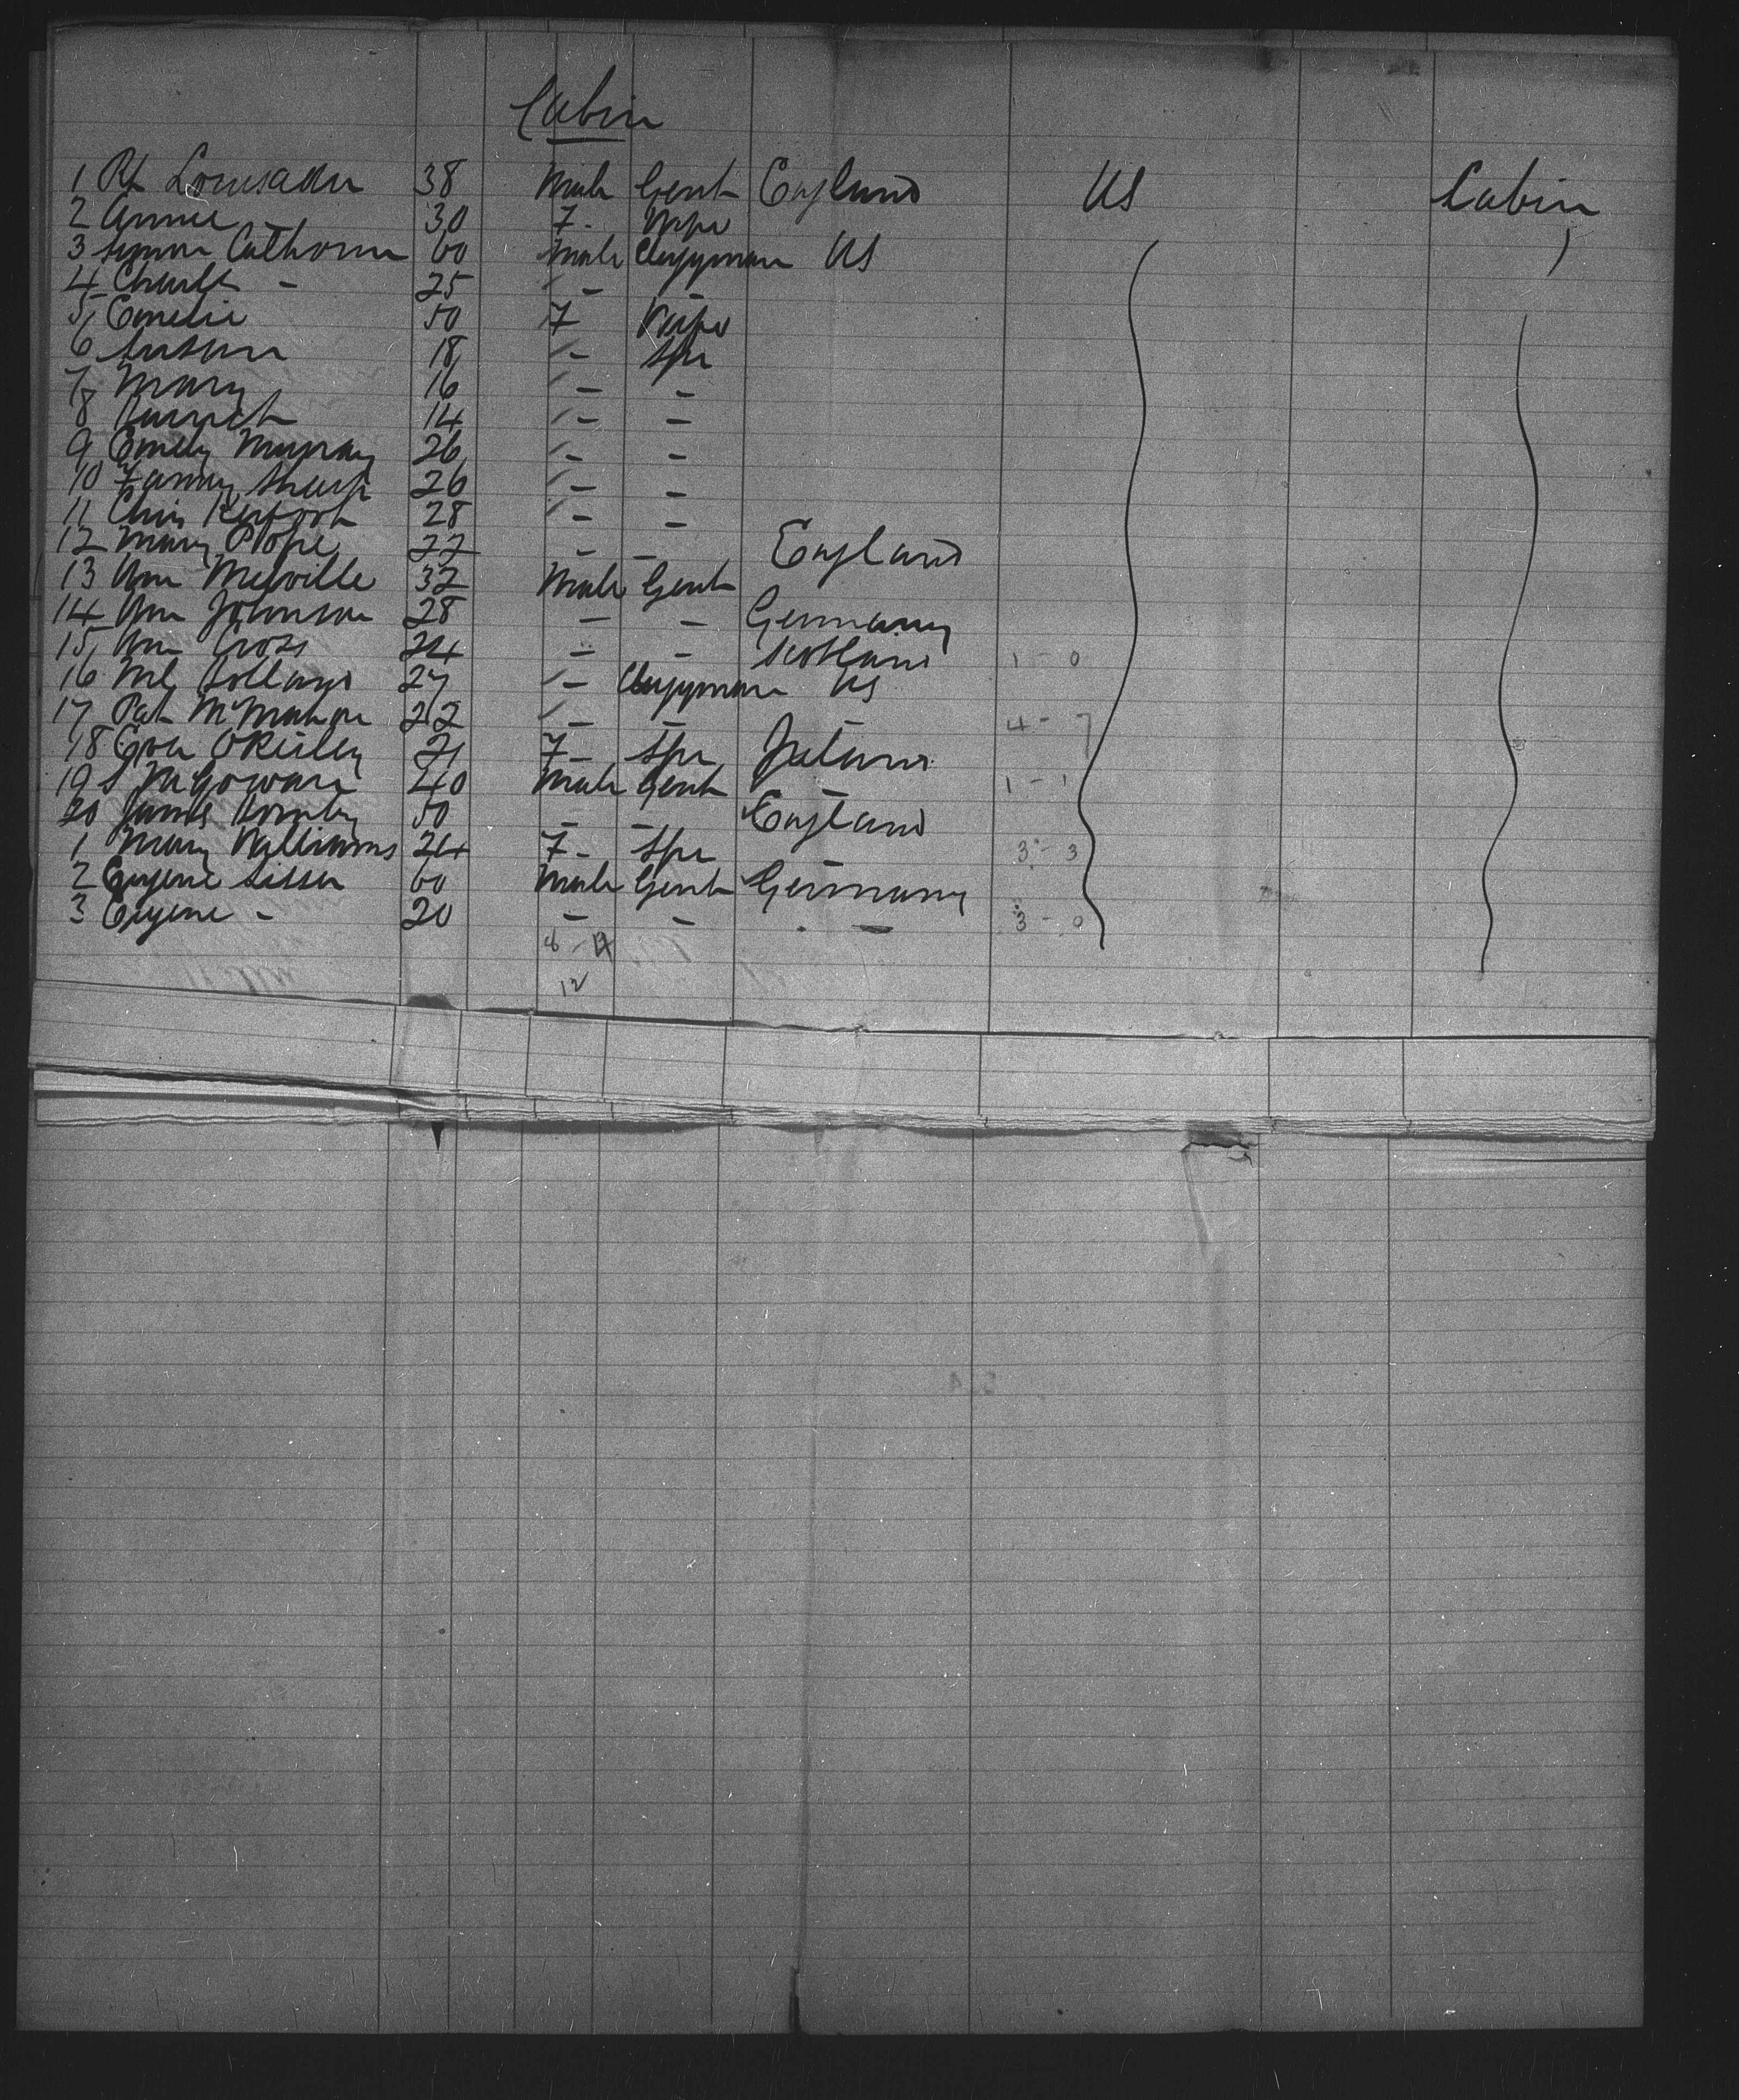 Cabin
1 Rt Lousada 38 Male Gent England US Cabin
2 Annie - 30 F - Wife
3 Symon Calhoun 60 Male Clergyman US
4 Charles - 25 " - -
5 Emelie 50 F Wife
6 Susan 18 " - Spr
7 Mary 16 " - -
8 14 " - -
9 Emely Murray 26 " - -
10 Fanny Sharp 26 " - -
11 Chris 28 " - -
12 Mary Pope 22 - - England
13 Wm Melville 32 Male Gent
14 Wm Johnson 28 - - Germany
15 Wm Cross 24 - - Scotland 1 - 0
16 Ml 27 " - Clergyman US
17 Pat McMahon 22 " - - - 4 - 7
18 O'Reilly 21 F - Spr Ireland
19 S McGowan 40 Male Gent - 1 - 1
20 James Hornby 50 - - England
1 Mary Williams 24 F - Spr - 3 - 3
2 Eugene 60 Male Gent Germany
3 Eugene - 20 - - - 3 - 0
12